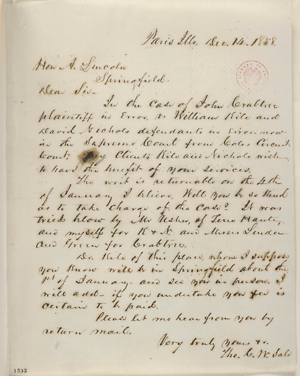 Paris Ills. Dec 14. 1858.
Hon A. Lincoln
Springfield.
Dear Sir.
In the Case of John Crabtree
plaintiff in Error, vs William Kile and
David Nichols defendants in Error now
in the Supreme Court from Coles Circuit
Court. My Clients Kile and Nichols wish
to have the benefit of your services.
The writ is returnable on the 4th
of January I believe. Will you be so kind
as to take charge of the case? It was
tried below by Mr Usher, of Terre Haute,
and myself for K & N and Messrs Linder
and Green for Crabtree.
Kile of this place, whom I suppose
you know will be in Springfield about the
1st of January and see you in person. I
will add if you undertake your fee is
certain to be paid.
Please let me hear from you by
return mail.
Very truly yours &c.